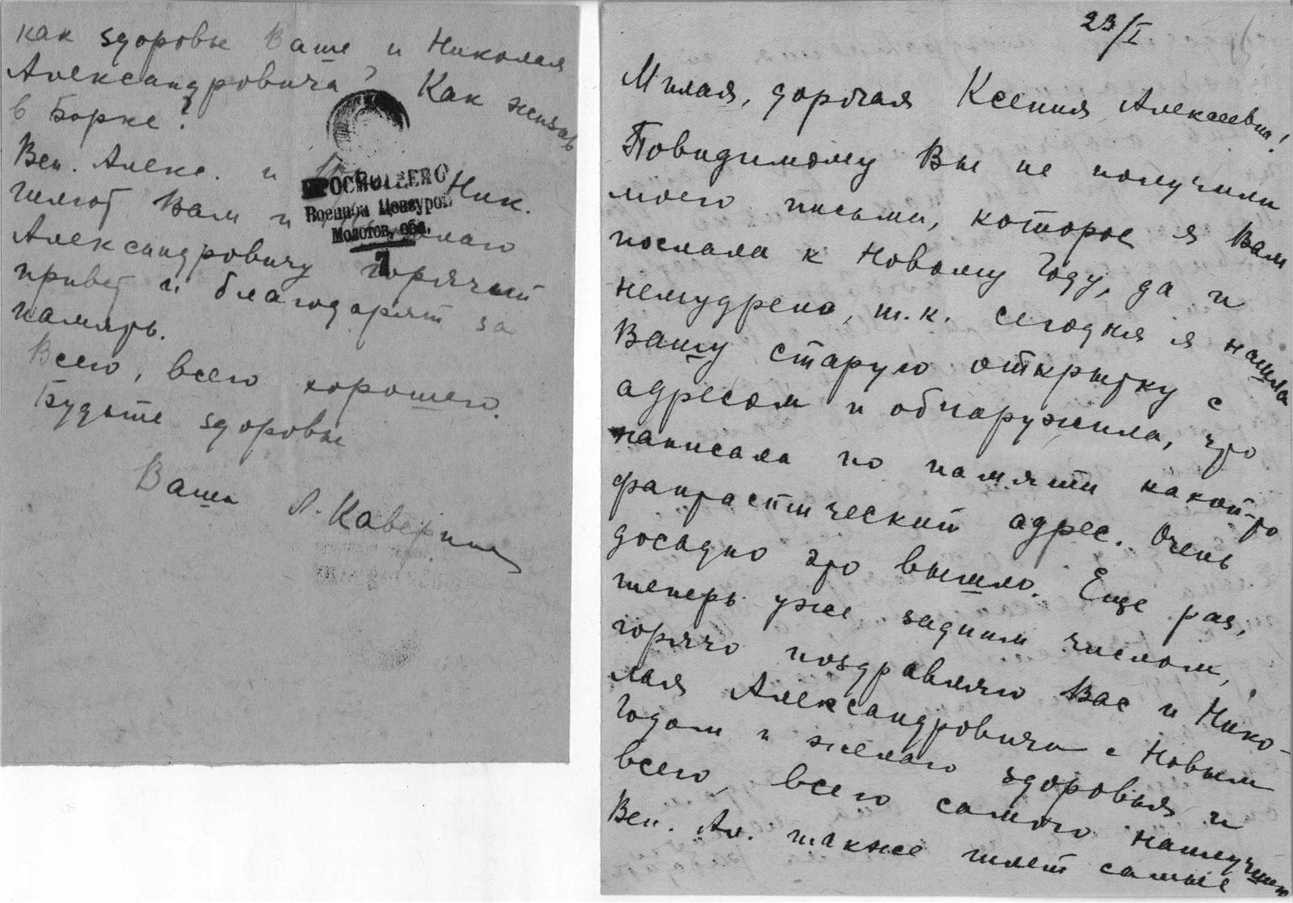 как здоровье Ваше и Николая
Александровича? Как жизнь
в Борке?
Вен. Алекс. и Ник.
шлют Вам и
Александровичу горячий
привет и благодарят за
память.
Всего, всего хорошего.
Будьте здоровы
Ваша Л. Каверина
ПРОСМОТРЕНО
Военной Цензурой
Молотов. обл.
7
23/I
Милая, дорогая Ксения Алексеевна!
Повидимому Вы не получили
моего письма, которое я Вам
послала к Новому Году, да и
немудрено, т.к. сегодня я нашла
Вашу старую открытку с
адресом и обнаружила, что
написала по памяти какой-то
фантастический адрес. Очень
досадно это вышло. Еще раз,
теперь уже задним числом,
горячо поздравляю Вас и Нико-
лая Александровича с Новым
Годом и желаю здоровья и
всего, всего самого наилучшего
Вен. Ал. также шлет самые